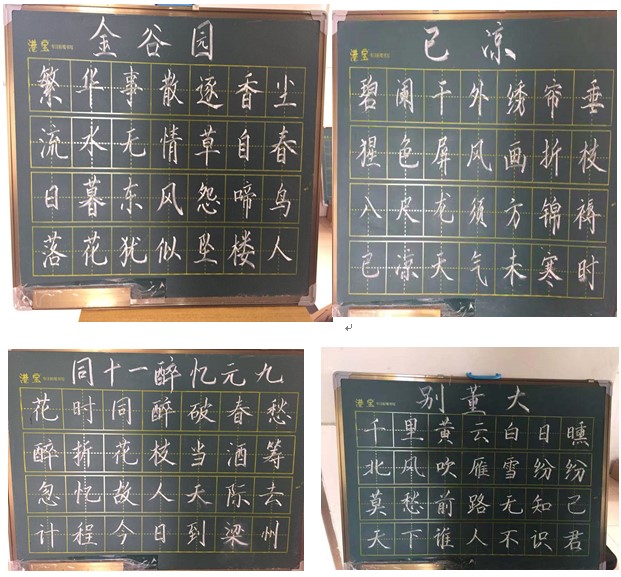 港宝
金谷园
繁华事散逐香尘
流水无情草自春
日暮东风怨啼鸟
落花犹似坠楼人
港宝
已凉
碧阑干外绣帘垂
猩色屏风画折枝
八尺龙须方锦褥
已凉天气未寒时
港宝
同十一醉忆元九
花时同醉破春愁
醉折花枝当酒筹
忽忆故人天际去
计程今日到梁州
港宝
别董大
千里黄云白日曛
北风吹雁雪纷纷
莫愁前路无知己
天下谁人不识君